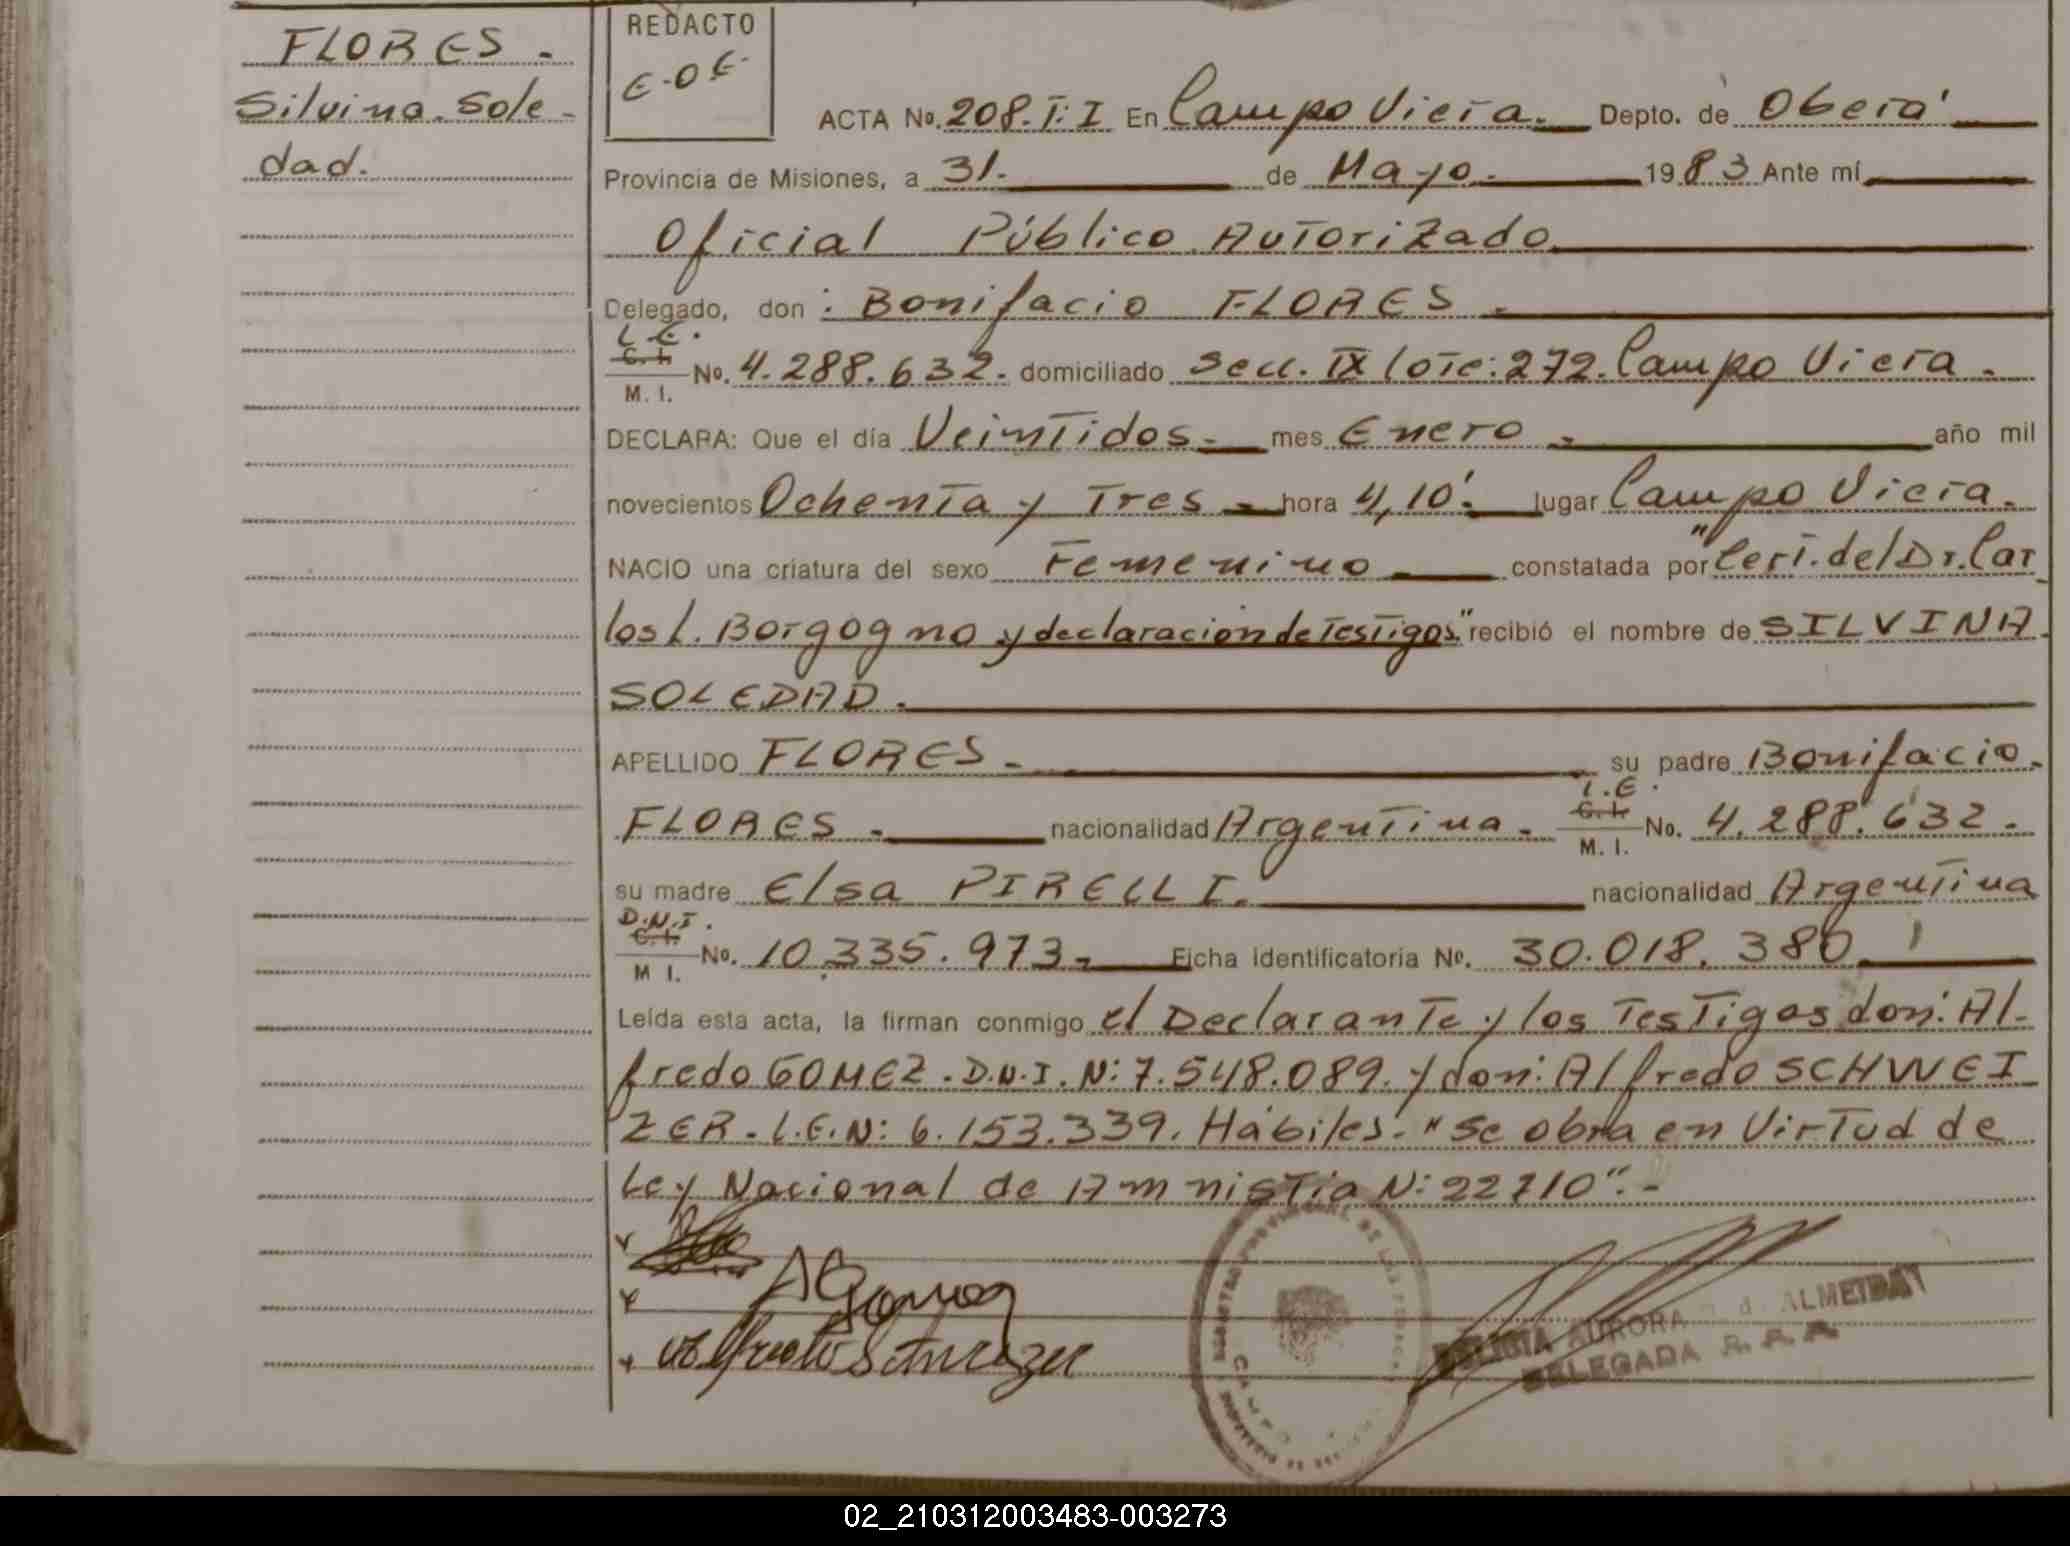 FLORES.
Silvina Sole-
dad.
REDACTO
E.O.E.
ACTA No. 208. T: I En Campo Viera. Depto. de Oberá
Provincia de Misiones, a 31. de Mayo. 1983 Ante mí
Oficial Público Autorizado
Delegado, don: Bonifacio FLORES.
L.E.
C. I.
M. I. No. 4.288.632. domiciliado Secc. IX lote: 272. Campo Viera.
DECLARA: Que el día Veintidos. mes Enero. año mil
novecientos Ochenta y Tres. hora 4,10'. lugar Campo Viera.
NACIO una criatura del sexo Femenino constatada por "Cert. del Dr. Car
los L. Borgogno y declaracion de Testigos" recibió el nombre de SILVINA
SOLEDAD.
APELLIDO FLORES. su padre Bonifacio.
FLORES. nacionalidad Argentina. L.E. C. I. M. I. No. 4.288.632.
su madre Elsa PIRELLI. nacionalidad Argentina
D.N.I.
C. I.
M I. No. 10.335.973. Ficha identificatoria No. 30.018.380
Leída esta acta, la firman conmigo el Declarante y los Testigos don: Al-
fredo GOMEZ. D.N.I. N: 7.548.089. y don: Alfredo SCHWEI
ZER. L.E. N: 6.153.339. Hábiles. "Se obra en Virtud de
Ley Nacional de Amnistia N: 22710".-
AGomez
DELICIA AURORA d. ALMEIDA
DELEGADA R. P. P.
02_210312003483-003273